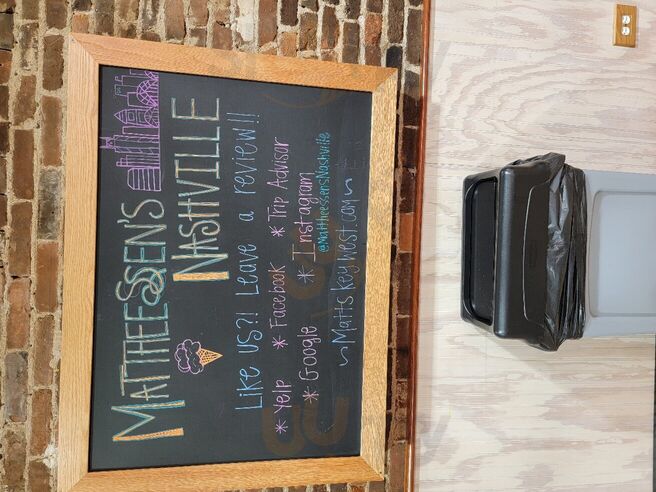 MATTHEESSEN'S
NASHVILLE
LIKE US?! Leave a review!!
* Yelp * Facebook * Trip Advisor
* Google * Instagram
@MattheessensNashville
~ Mattskeywest.com ~